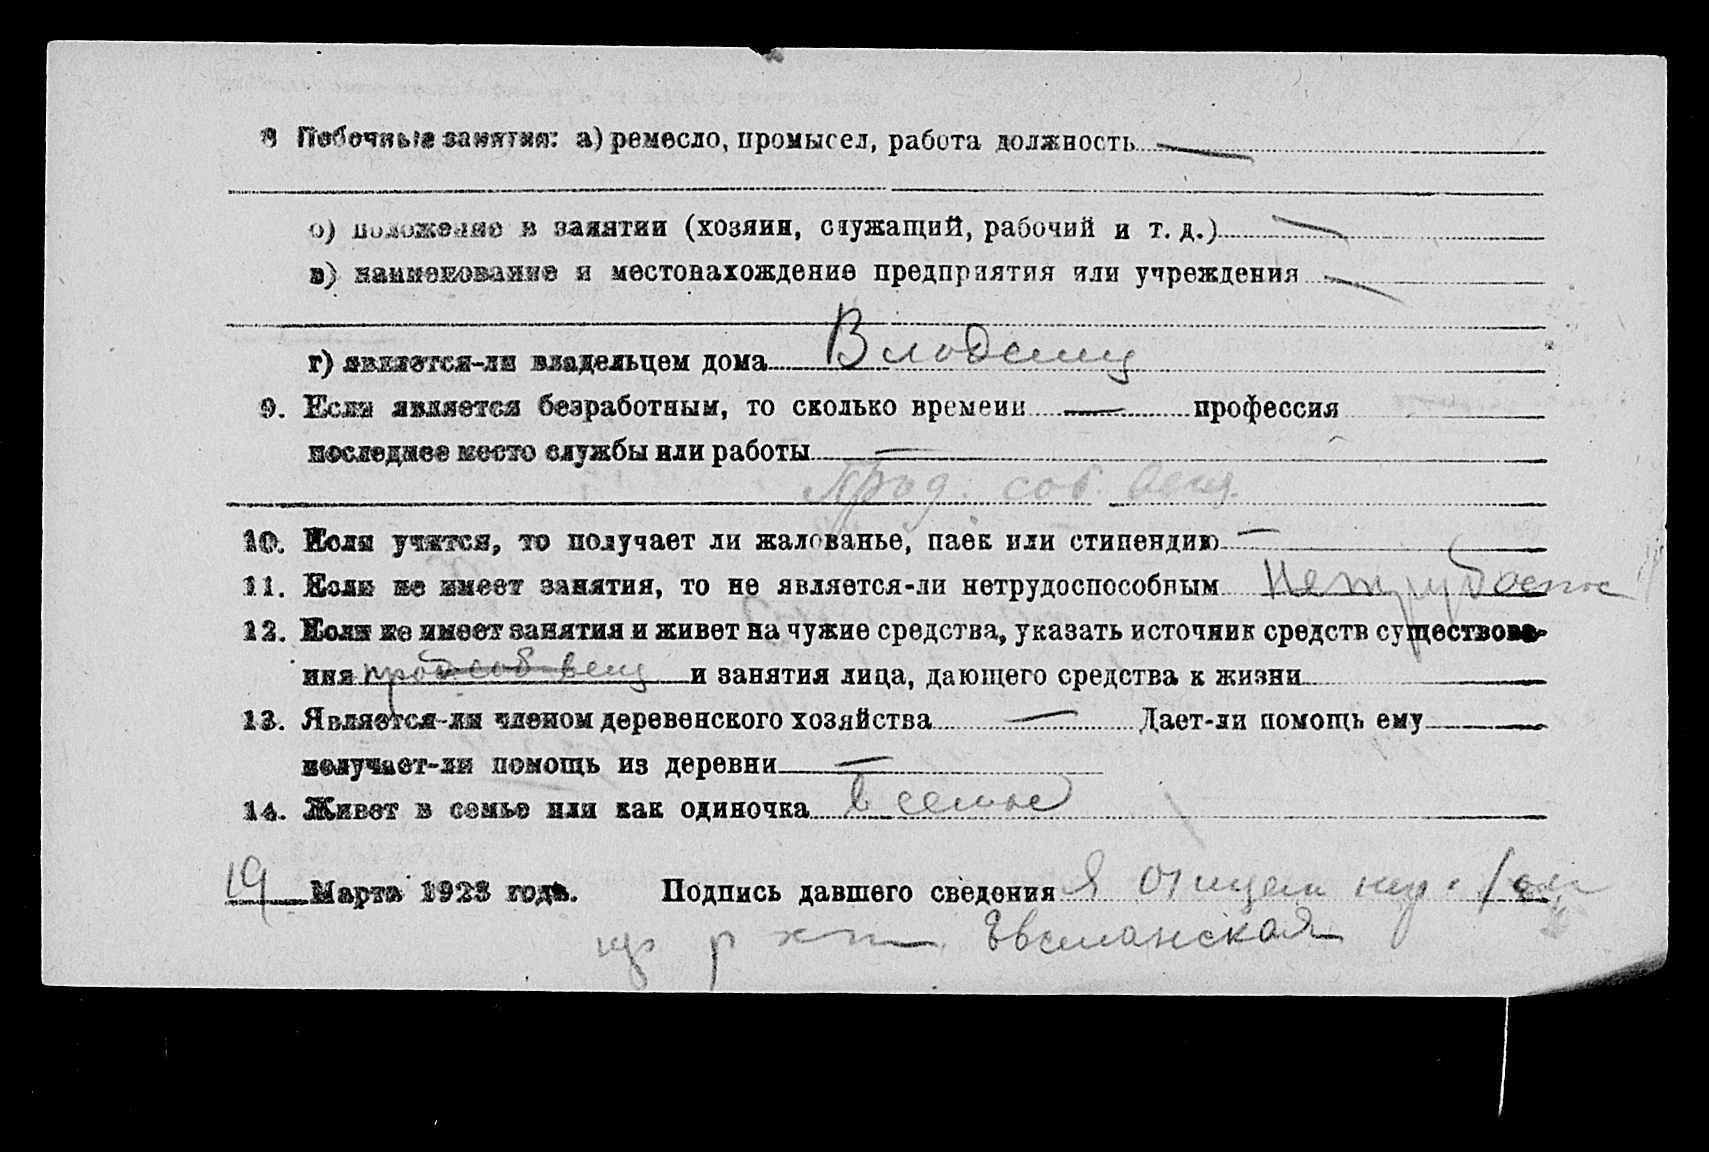 8 Побочные занятия: а) ремесло, промысел, работа должность
б) положение в занятии (хозяин, служащий, рабочий и т. д.)
в) наименование и местонахождение предприятия или учреждения
г) является-ли владельцем дома
9. Если является безработным, то сколько времени — профессия
последнее место службы или работы —
прод. соб. вещ.
10. Если учится, то получает ли жалованье, паек или стипендию —
11. Если не имеет занятия, то не является-ли нетрудоспособным нетрудоспос
12. Если не имеет занятия и живет на чужие средства, указать источник средств существова-
ния прод соб вещ и занятия лица, дающего средства к жизни
13. Является-ли членом деревенского хозяйства — Дает-ли помощь ему
получает-ли помощь из деревни —
14. Живет в семье или как одиночка в семье
19 Марта 1923 года. Подпись давшего сведения